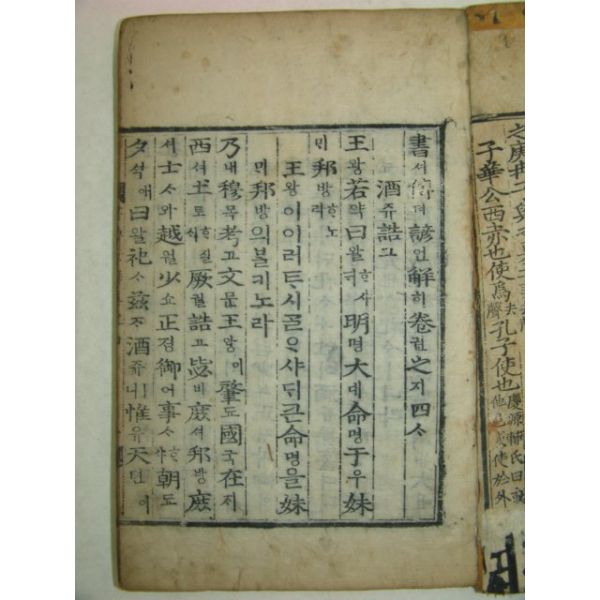 書셔傳뎐諺언解ᄒᆡ卷권之지四ᄉᆞ
酒쥬誥고
王왕若약曰왈ᄒᆞ샤明명大대命명于우妹
ᄆᆡ邦방ᄒᆞ노라
王왕이이러ᄐᆞ시ᄀᆞᆯᄋᆞ샤ᄃᆡ큰命명을妹
ᄆᆡ邦방의ᄇᆞᆯ기노라
乃내穆목考고文문王왕이肇됴國국在ᄌᆡ
西셔土토ᄒᆞ실ᄉᆡ厥궐誥고毖비庶셔邦방庶
셔士ᄉᆞ와越월少쇼正졍御어事ᄉᆞᄒᆞ샤朝됴
夕셕애曰왈祀ᄉᆞ茲ᄌᆞ酒쥬ㅣ니惟유天텬이
子華公西赤也使爲去聲孔子使也慶源輔氏曰